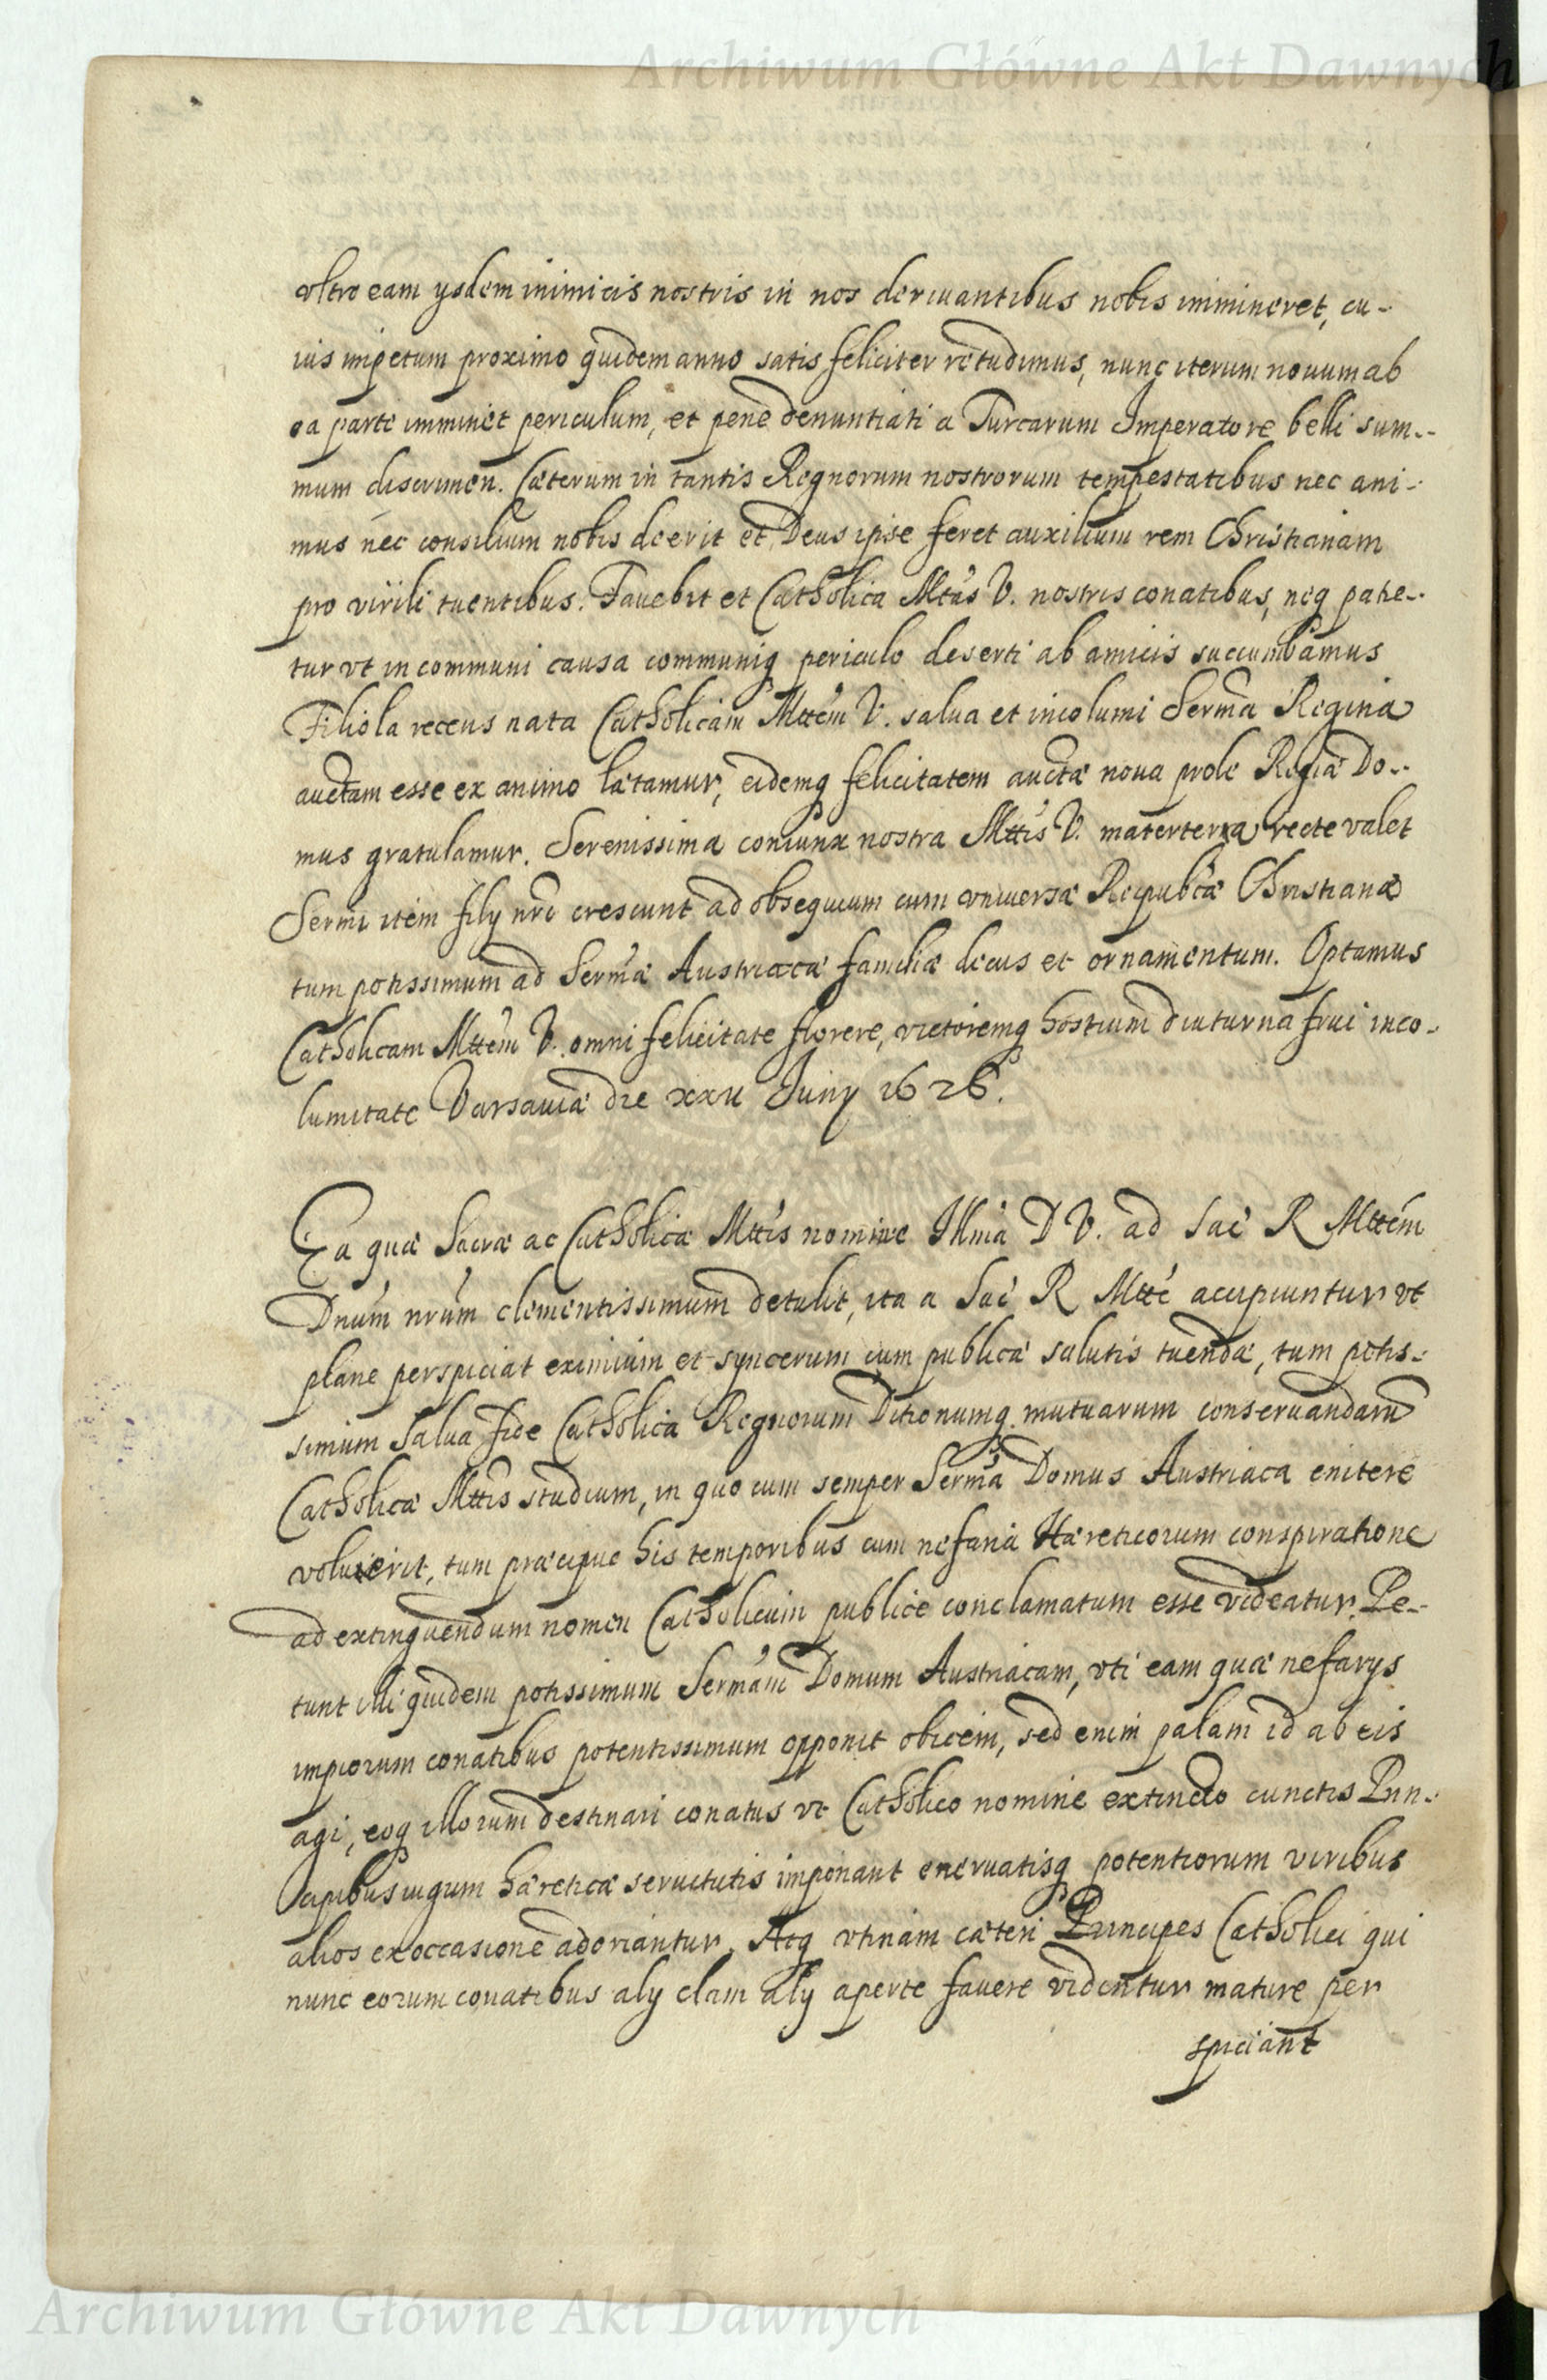 Archiwum Główne Akt Dawnych
vltro eam ysdem inimicis nostris in nos deriuantibus nobis immineret, cu-
ius impetum proximo quidem anno satis feliciter retudimus, nunc iterum nouum ab
ea parte imminet periculum, et pene denuntiati a Turcarum Imperatore belli sum-
mum discrimen. Cæterum in tantis Regnorum nostrorum tempestatibus nec ani-
mus nec consilium nobis deerit et Deus ipse feret auxilium rem Christianam
pro virili tuentibus. Fauebit et Catholica Mtas V. nostris conatibus, neq patie-
tur vt in communi causa communiq periculo deserti ab amicis succumbamus
Filiola recens nata Catholicam Mttem V. salua et incolumi Serma Regina
auctam esse ex animo lætamur, eidemq felicitatem auctæ noua prole Regiæ Do-
mus gratulamur. Serenissima coniunx nostra Mttis V. matertera recte valet
Sermi item filij nri crescunt ad obsequium cum vniuersæ Reipubcæ Christianæ
tum potissimum ad Sermæ Austriacæ familiæ decus et ornamentum. Optamus
Catholicam Mttem V. omni felicitate florere, victoremq hostium diuturna frui inco-
lumitate Varsauiæ die xxv Junij 1626.
Ea quæ Sacræ ac Catholicæ Mttis nomine Illma D V. ad Sac R Mttem
Dnum nrum clementissimum detulit, ita a Sac R Mtte accipiuntur vt
plane perspiciat eximium et syncerum cum publicæ salutis tuendæ, tum potis-
simum salua fide Catholica Regnorum Ditionumq mutuarum conseruandarum
Catholicæ Mttis studium, in quo cum semper Serma Domus Austriaca enitere
voluerit, tum præcipue his temporibus cum nefaria Hæreticorum conspiratione
ad extinguendum nomen Catholicum publice conclamatum esse videatur. Pe-
tunt illi quidem potissimum Sermam Domum Austriacam, vti eam quæ nefarys
impiorum conatibus potentissimum opponit obicem, sed enim palam id ab eis
agi, eoq illorum destinari conatus vt Catholico nomine extincto cunctis Prin-
cipibus iugum hæreticæ seruitutis imponant eneruatisq potentiorum viribus
alios ex occasione adoriantur. Atq vtinam cæteri Principes Catholici qui
nunc eorum conatibus alij clam alij aperte fauere videntur mature per
spiciant
Archiwum Główne Akt Dawnych